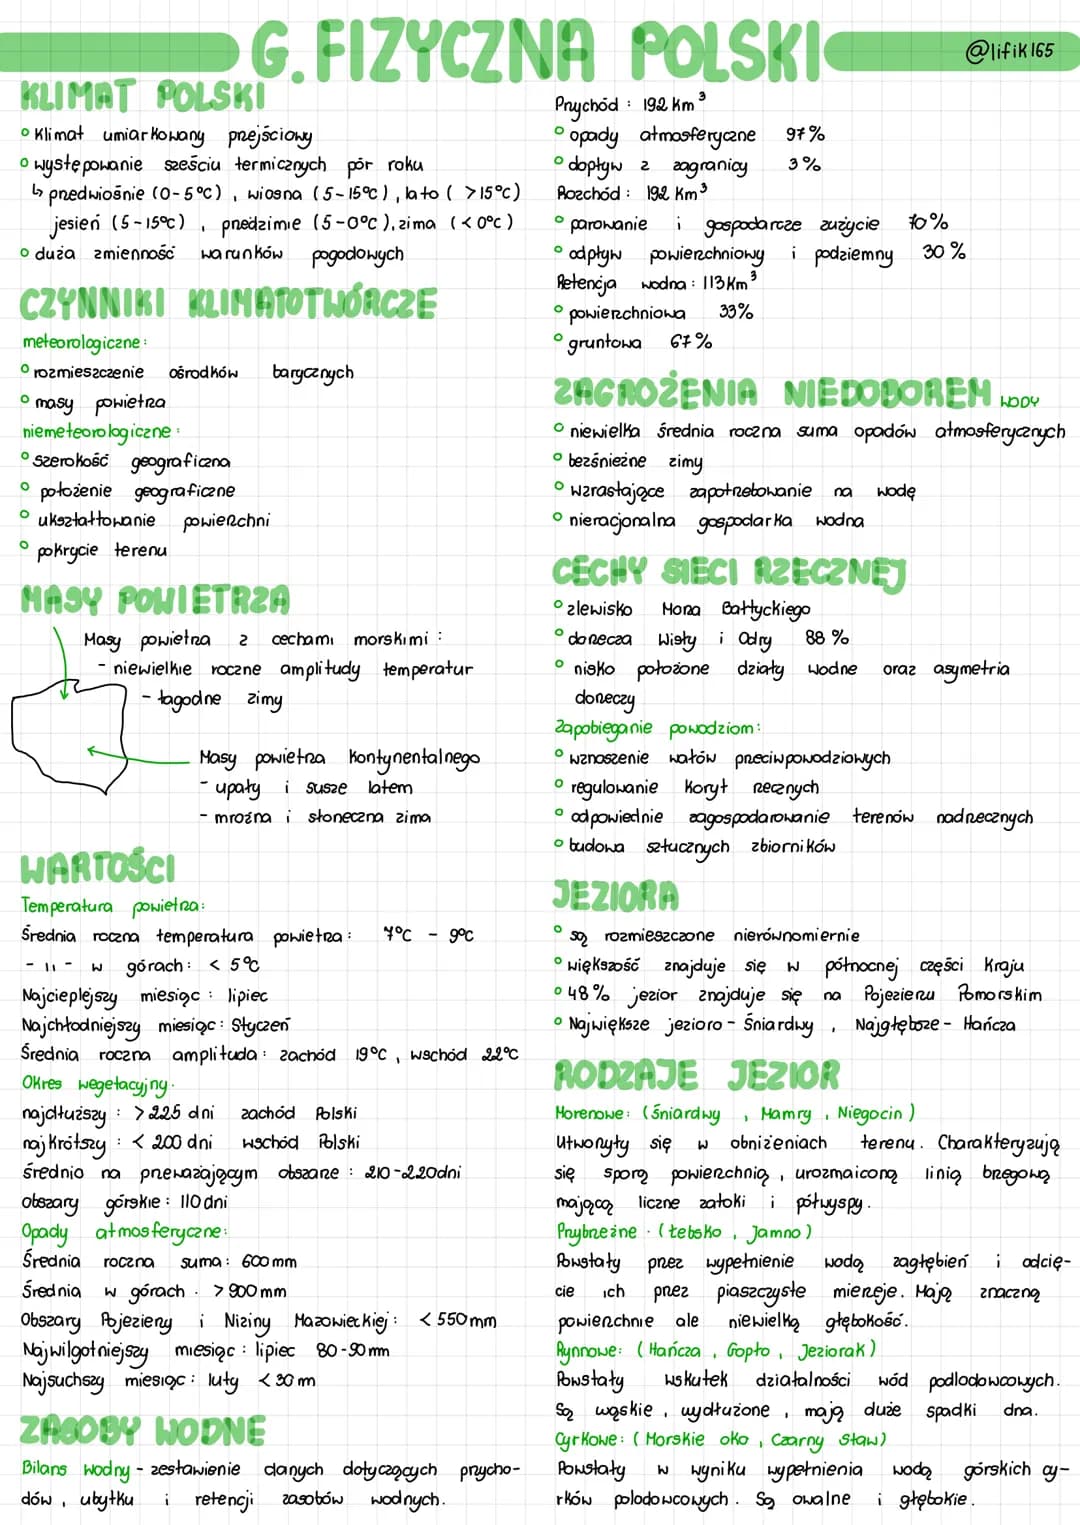 G. FIZYCZNA POLSKI
@lifik165
KLIMAT POLSKI
° Klimat umiarkowany przejściowy
° występowanie sześciu termicznych pór roku
↳ przedwiośnie (0-5°C), wiosna (5-15°C), lato ( >15°C)
jesień (5-15°C) , przedzimie (5-0°C), zima (<0°C)
° duża zmienność warunków pogodowych
CZYNNIKI KLIMATOTWÓRCZE
meteorologiczne:
° rozmieszczenie ośrodków barycznych
° masy powietrza
niemeteorologiczne:
° szerokość geograficzna
° położenie geograficzne
° ukształtowanie powierzchni
° pokrycie terenu
MASY POWIETRZA
Masy powietrza z cechami morskimi :
- niewielkie roczne amplitudy temperatur
- łagodne zimy
Masy powietrza kontynentalnego
- upały i susze latem
- mroźna i słoneczna zima
WARTOŚCI
Temperatura powietrza:
Średnia roczna temperatura powietrza: 7°C - 9°C
- 11 - w górach: < 5°C
Najcieplejszy miesiąc : lipiec
Najchłodniejszy miesiąc: Styczeń
Średnia roczna amplituda: zachód 19°C, wschód 22°C
Okres wegetacyjny.
najdłuższy : >225 dni zachód Polski
najkrótszy : < 200 dni wschód Polski
średnio na przeważającym obszarze : 210-220dni
obszary górskie: 110 dni
Opady atmosferyczne:
Średnia roczna suma: 600 mm
Średnia w górach . >900 mm
Obszary Pojezierzy i Niziny Mazowieckiej: <550 mm
Najwilgotniejszy miesiąc : lipiec 80-90 mm
Najsuchszy miesiąc: luty <30 m
ZASOBY WODNE
Bilans wodny - zestawienie danych dotyczących przycho-
dów, ubytku i retencji zasobów wodnych.
Przychód : 192 km³
° opady atmosferyczne 97%
° dopływ z zagranicy 3%
Rozchód : 192 Km³
° parowanie i gospodarcze zużycie 70%
° odpływ powierzchniowy i podziemny 30%
Retencja wodna: 113 Km³
° powierzchniowa 33%
° gruntowa 67%
ZAGROŻENIA NIEDOBOREM WODY
° niewielka średnia roczna suma opadów atmosferycznych
° bezśnieżne zimy
° wzrastające zapotrzebowanie na wodę
° nieracjonalna gospodarka wodna
CECHY SIECI RZECZNEJ
° zlewisko Morza Bałtyckiego
° dorzecza Wisły i Odry 88%
° nisko położone działy wodne oraz asymetria
dorzeczy
Zapobieganie powodziom:
° wznoszenie wałów przeciwpowodziowych
° regulowanie koryt rzecznych
° odpowiednie zagospodarowanie terenów nadrzecznych
° budowa sztucznych zbiorników
JEZIORA
° są rozmieszczone nierównomiernie
° większość znajduje się w północnej części Kraju
° 48% jezior znajduje się na Pojezierzu Pomorskim
° Największe jezioro - Śniardwy , Najgłębsze - Hańcza
RODZAJE JEZIOR
Morenowe: (Śniardwy , Mamry , Niegocin)
Utworzyły się w obniżeniach terenu. Charakteryzują
się sporą powierzchnią , urozmaiconą linią brzegową
mającą liczne zatoki i półwyspy.
Przybrzeżne . (Łebsko , Jamno)
Powstały przez wypełnienie wodą zagłębień i odcię-
cie ich przez piaszczyste mierzeje. Mają znaczną
powierzchnie ale niewielką głębokość.
Rynnowe: (Hańcza , Gopło , Jeziorak)
Powstały wskutek działalności wód podlodowcowych.
Są wąskie , wydłużone , mają duże spadki dna.
Cyrkowe: (Morskie oko , Czarny Staw)
Powstały w wyniku wypełnienia wodą górskich cy-
rków polodowcowych. Są owalne i głębokie.